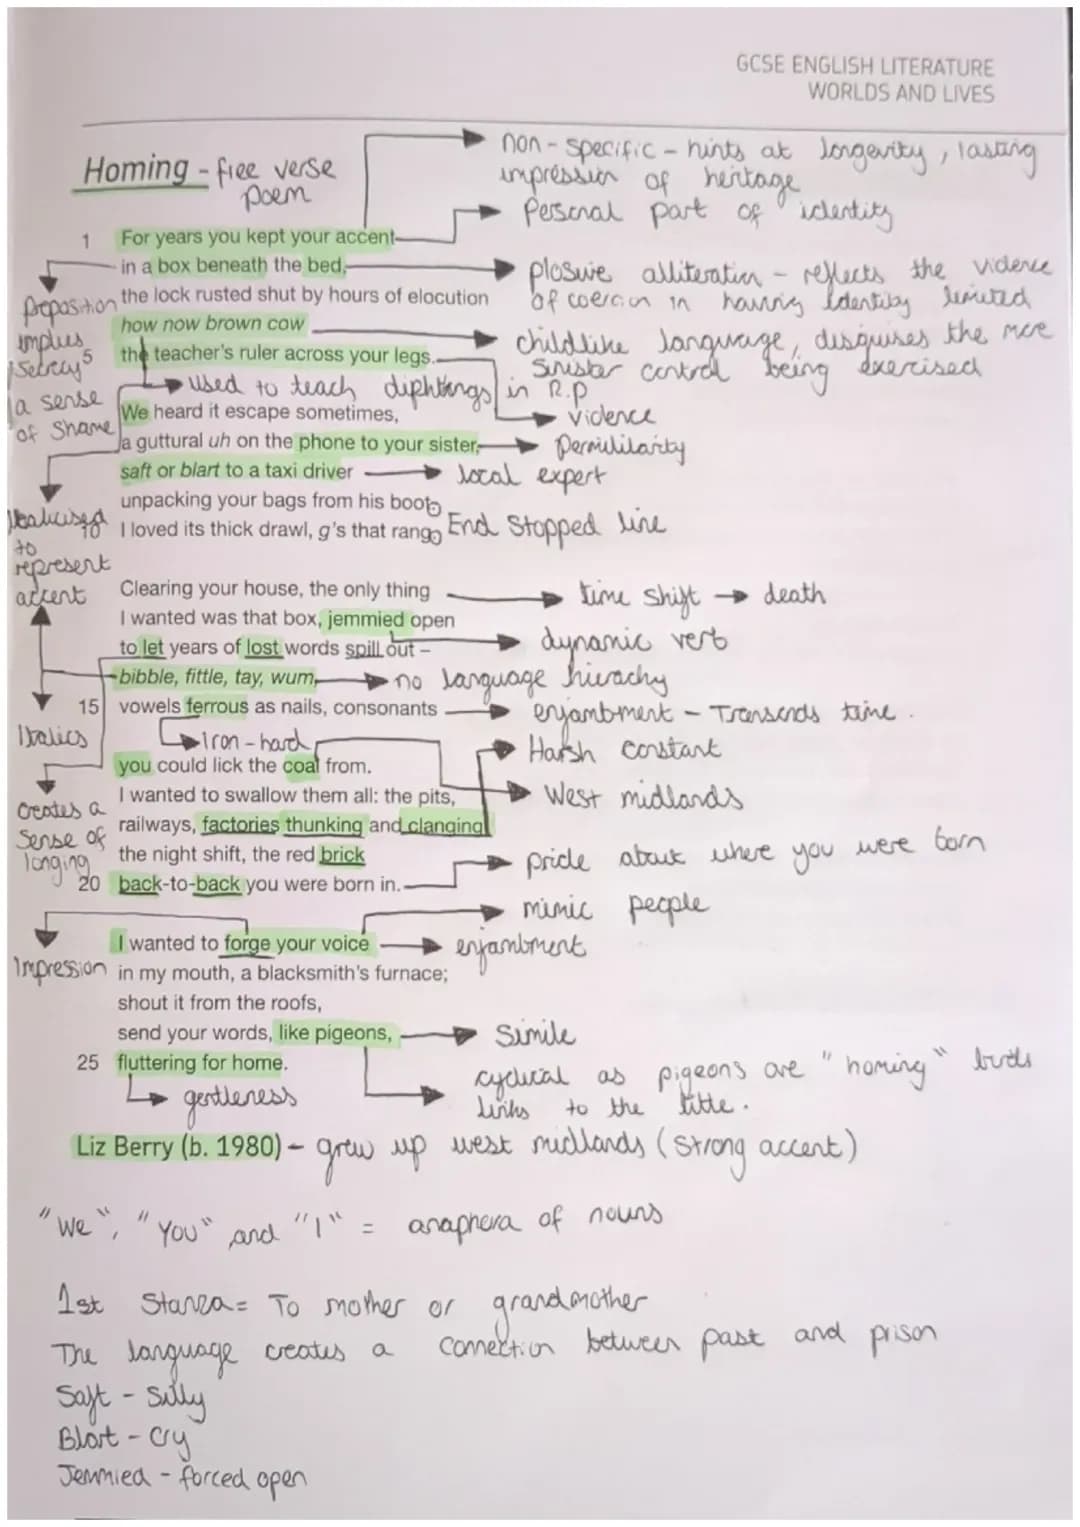 GCSE ENGLISH LITERATURE
WORLDS AND LIVES
Homing - free verse
poem
non-specific - hints at longevity, lasting
impression of heritage
Personal part of identity
1 For years you kept your accent
in a box beneath the bed,
plosive alliteration - reflects the violence
of coercion in having identity limited
Preposition
implies
secrecy
a sense
of shame
the lock rusted shut by hours of elocution
how now brown cow
childlike language, disguises the more
sinister control being exercised
5 the teacher's ruler across your legs.
violence
used to teach dipthongs in R.P
We heard it escape sometimes,
a guttural uh on the phone to your sister,
saft or blart to a taxi driver
local expert
unpacking your bags from his boot.
10 I loved its thick drawl, g's that rang.
End Stopped line
Italicised
to
represent
accent
Clearing your house, the only thing
time shift → death
I wanted was that box, jemmied open
to let years of lost words spill out –
dynamic verb
bibble, fittle, tay, wum,
no language hirachy
15 vowels ferrous as nails, consonants
enjambment - Transends time.
Italics
iron-hard
Harsh constant
you could lick the coal from.
West midlands
I wanted to swallow them all: the pits,
railways, factories thunking and clanging
creates a
sense of
longing
the night shift, the red brick
20 back-to-back you were born in.
pride about where you were born
mimic people
I wanted to forge your voice
enjambment
Impression
in my mouth, a blacksmith's furnace;
shout it from the roofs,
send your words, like pigeons,
Simile
25 fluttering for home.
gentleness
cyclical as pigeons are "homing" birds
links to the title.
Liz Berry (b. 1980) - grew up west midlands (Strong accent)
"We", "You" and "I" = anaphera of nouns
1st Stanza = To mother or grandmother
The language creates a connection between past and prison
Saft - Silly
Blart - Cry
Jemmied - forced open